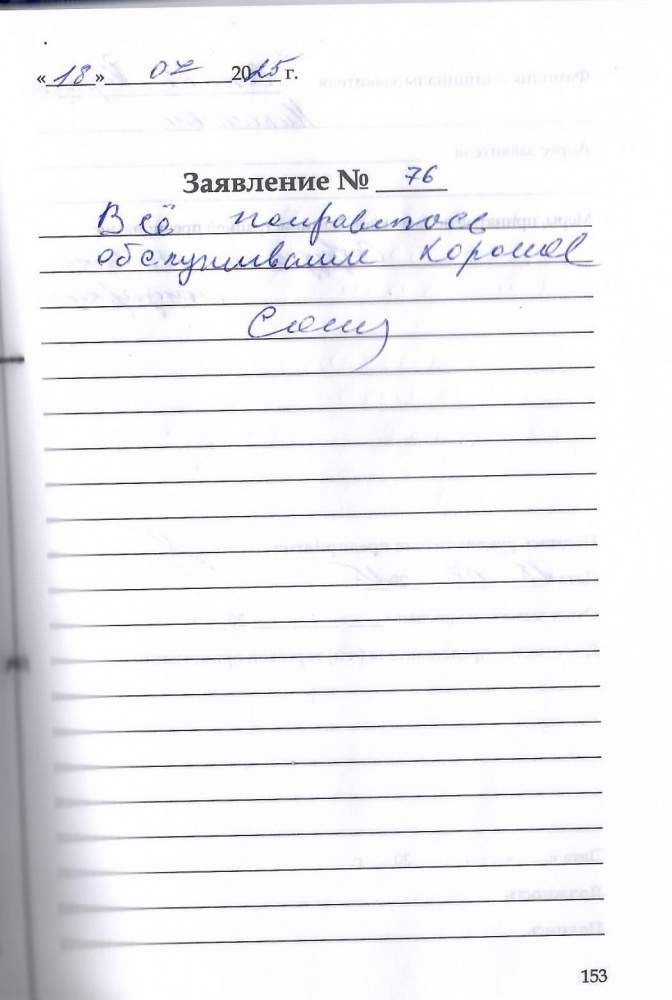 «18» 07 2025 г.
Заявление № 76
Всё понравилось
обслуживание хорошее
153